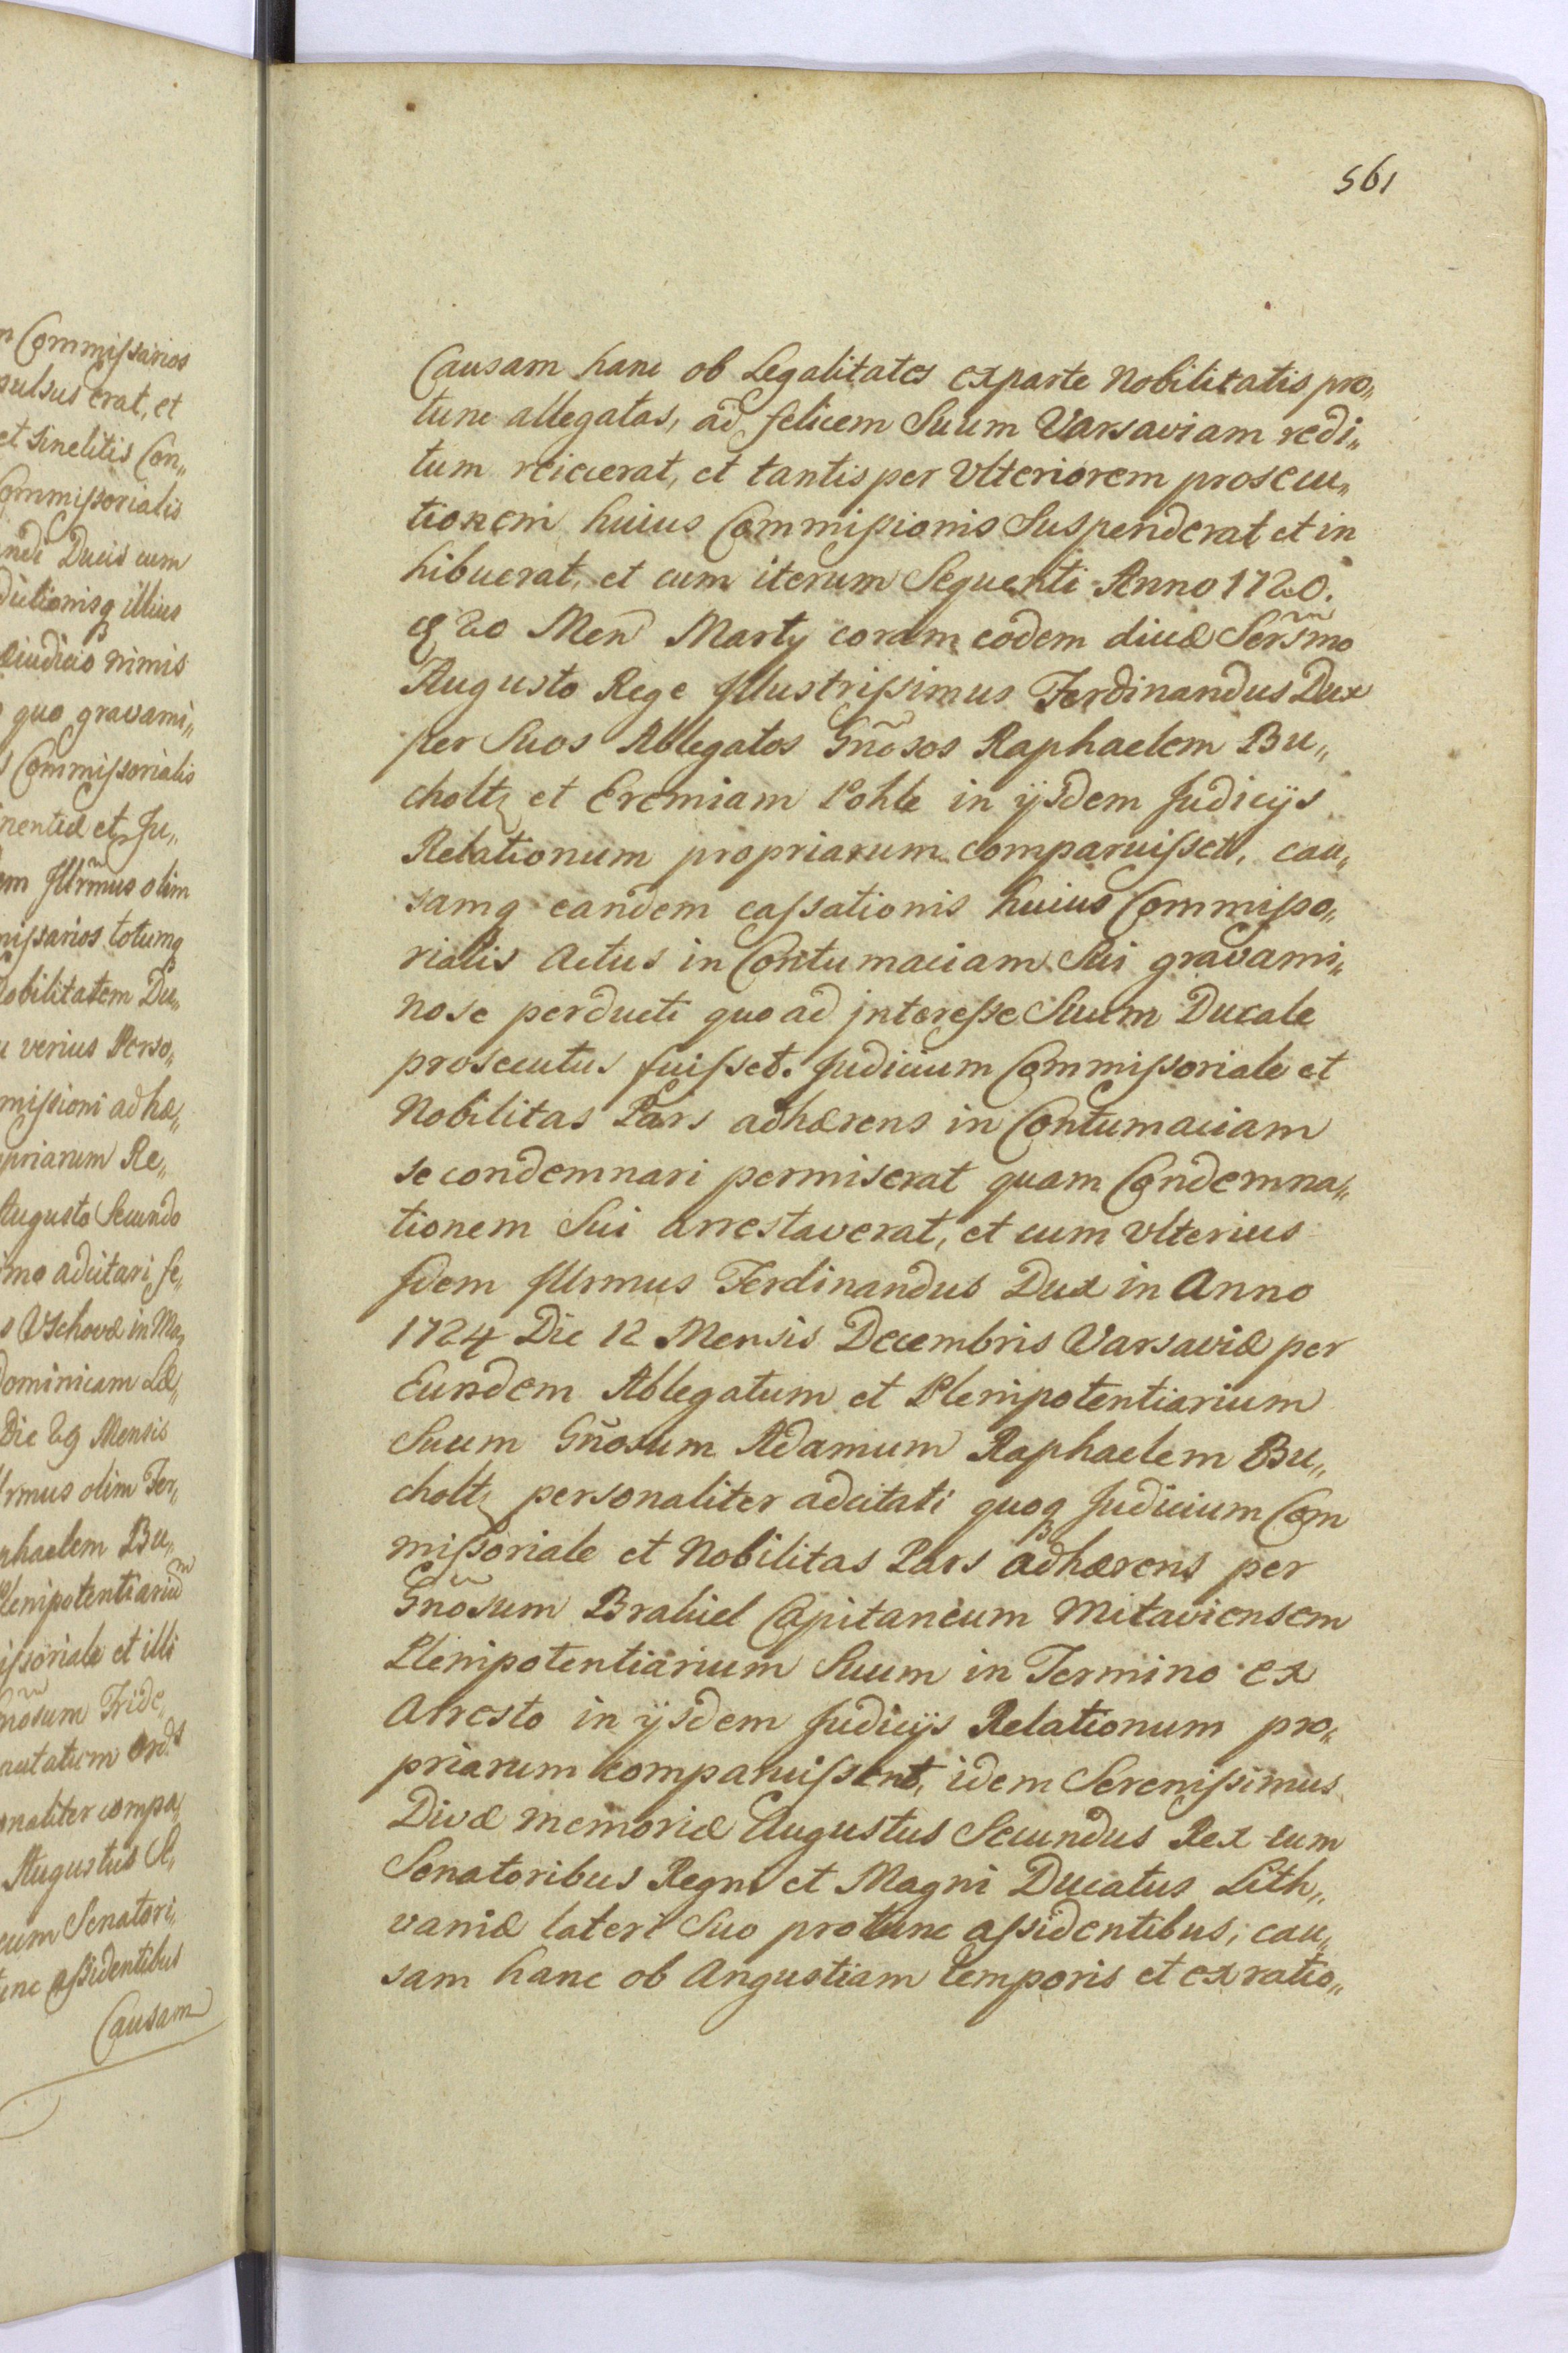 n Commissarios
pulsus erat, et
et sinelitis Con„
Commissorialis
Ducis cum
illius
nimis
quo gravami„
Commissorialis
nentiæ et Ju„
Illrmus olim
missarios totumq
Nobilitatem Du„
verius Perso„
missioni adhæ„
opriarum Re„
Augusto Secundo
adcitari fe„
Vschovæ in Ma„
Dominicam Læ„
Die 29 Mensis
Illrmus olim Fer„
aphaelem Bu„
Plenipotentiarium
issoriale et illi
Gñosum Fride„
onaliter compa„
Augustus Se„
cum Senatori„
tunc assidentibus
Causam
561
Causam hanc ob Legalitates ex parte Nobilitatis pro„
tunc allegatas, ad felicem Suum Varsaviam redi„
tum reiecerat, et tantisper Ulteriorem prosecu„
tionem huius Commissionis Suspenderat et in
hibuerat, et cum iterum Sequenti Anno 1720.
20 Men Martÿ coram eodem divæ Sersm̃o
Augusto Rege Illustrissimus Ferdinandus Dux
per Suos Ablegatos Gñosos Raphaelem Bu„
choltz et Eremiam Pohle in ÿsdem Judicÿs
Relationum propriarum comparuisset, cau„
samq eandem cassationis huius Commisso„
rialis Actus in Contumaciam Sui gravami„
nose perducti quo ad interesse Suum Ducale
prosecutus fuisset. Judicium Commissoriale et
Nobilitas Pars adhærens in Contumaciam
se condemnari permiserat quam Condemna„
tionem Sui arrestaverat, et cum ulterius
Idem Illrmus Ferdinandus Dux in Anno
1724 Die 12 Mensis Decembris Varsaviæ per
Eundem Ablegatum et Plenipotentiarium
Suum Gñosum Adamum Raphaelem Bu„
choltz personaliter adcitati quoq Judicium Com
missoriale et Nobilitas Pars adhærens per
Gñosum Brakiel Capitaneum Mitaviensem
Plenipotentiarium Suum in Termino ex
Arresto in ÿsdem Judicÿs Relationum pro„
priarum comparuissent, idem Serenissimus
Divæ memoriæ Augustus Secundus Rex cum
Senatoribus Regni et Magni Ducatus Lith„
vaniæ lateri Suo protunc assidentibus, cau„
sam hanc ob Angustiam temporis et ex ratio„